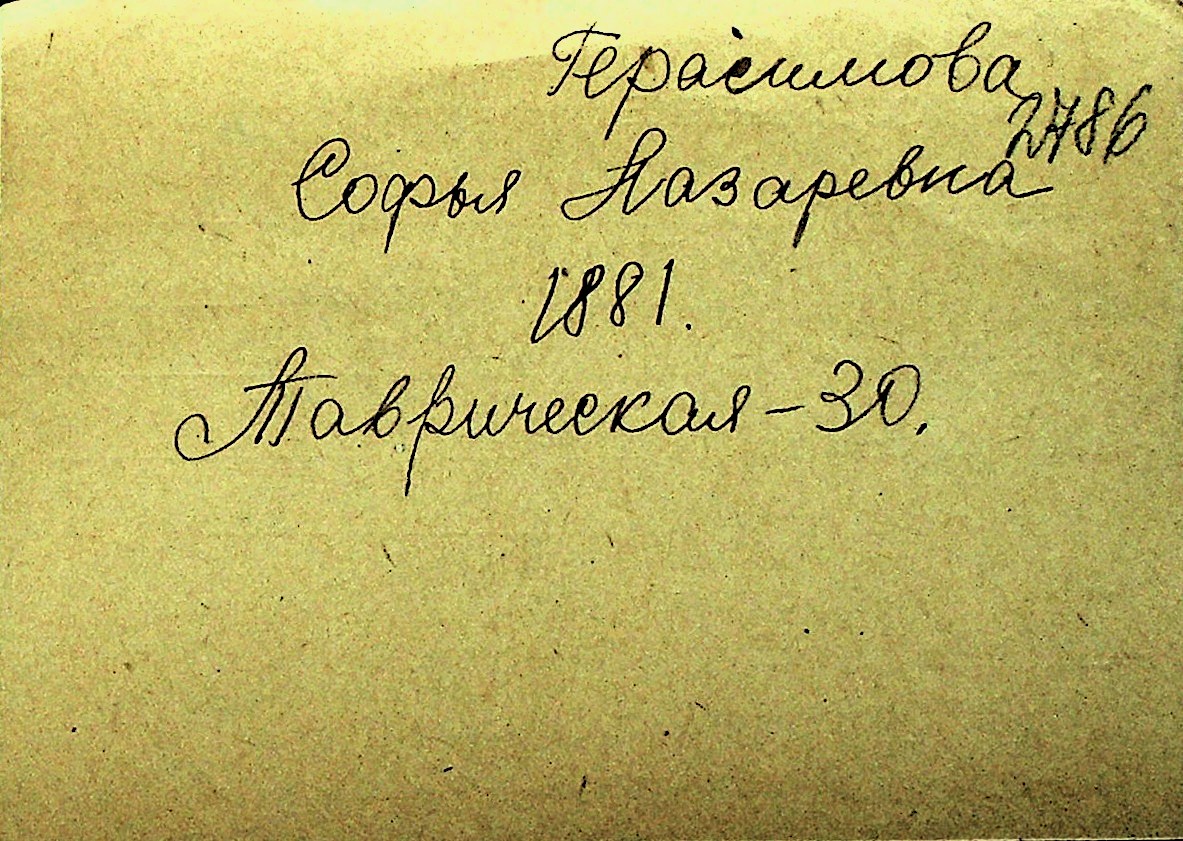 Герасимова
2486
Софья Назаревна
1881.
Таврическая - 30.